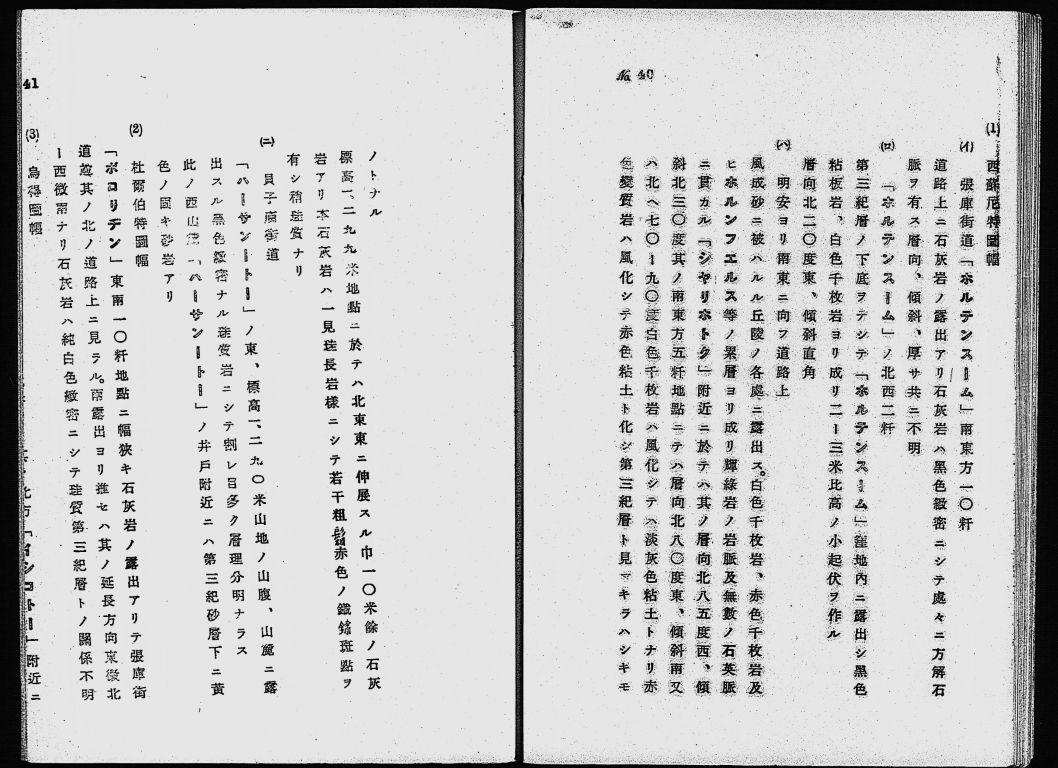 No. 40
(1) 西蘇尼特圖幅
(イ) 張庫街道「ホルテンスーム」南東方一〇粁
道路上ニ石灰岩ノ露出アリ石灰岩ハ黑色緻密ニシテ處々ニ方解石
脈ヲ有ス層向、傾斜、厚サ共ニ不明
(ロ) 「ホルテンスーム」ノ北西二粁
第三紀層ノ下底ヲナシテ「ホルテンスーム」窪地內ニ露出シ黑色
粘板岩、白色千枚岩ヨリ成リ二ー三米比高ノ小起伏ヲ作ル
層向北二〇度東、傾斜直角
(ハ) 明安ヨリ南東ニ向フ道路上
風成砂ニ被ハルル丘陵ノ各處ニ露出ス。白色千枚岩、赤色千枚岩及
ヒホルンフエルス等ノ累層ヨリ成リ輝綠岩ノ岩脈及無數ノ石英脈
ニ貫カル「シヤリホトク」附近ニ於テハ其ノ層向北八五度西、傾
斜北三〇度其ノ南東方五粁地點ニテハ層向北八〇度東、傾斜南又
ハ北ヘ七〇ー九〇度白色千枚岩ハ風化シテハ淡灰色粘土トナリ赤
色變質岩ハ風化シテ赤色粘土ト化シ第三紀層ト見マキラハシキモ
41
ノトナル
標高一、二九九米地點ニ於テハ北東東ニ伸展スル巾一〇米餘ノ石灰
岩アリ本石灰岩ハ一見珪長岩樣ニシテ若干粗鬆赤色ノ鐵銹斑點ヲ
有シ稍珪質ナリ
(ニ) 貝子廟街道
「ハーサントート」ノ東、標高一、二九〇米山地ノ山腹、山麓ニ露
出スル黑色緻密ナル珪質岩ニシテ割レ目多ク層理分明ナラス
此ノ西山「ハーサントート」ノ井戶附近ニハ第三紀砂層下ニ黃
色ノ固キ砂岩アリ
(2) 杜爾伯特圖幅
「ボコリデン」東南一〇粁地點ニ幅狹キ石灰岩ノ露出アリテ張庫街
道越其ノ北ノ道路上ニ見ラル。兩露出ヨリ推セハ其ノ延長方向東微北
ー西微南ナリ石灰岩ハ純白色緻密ニシテ珪質第三紀層トノ關係不明
(3) 烏得圖幅
北方「イシコトー」附近ニ